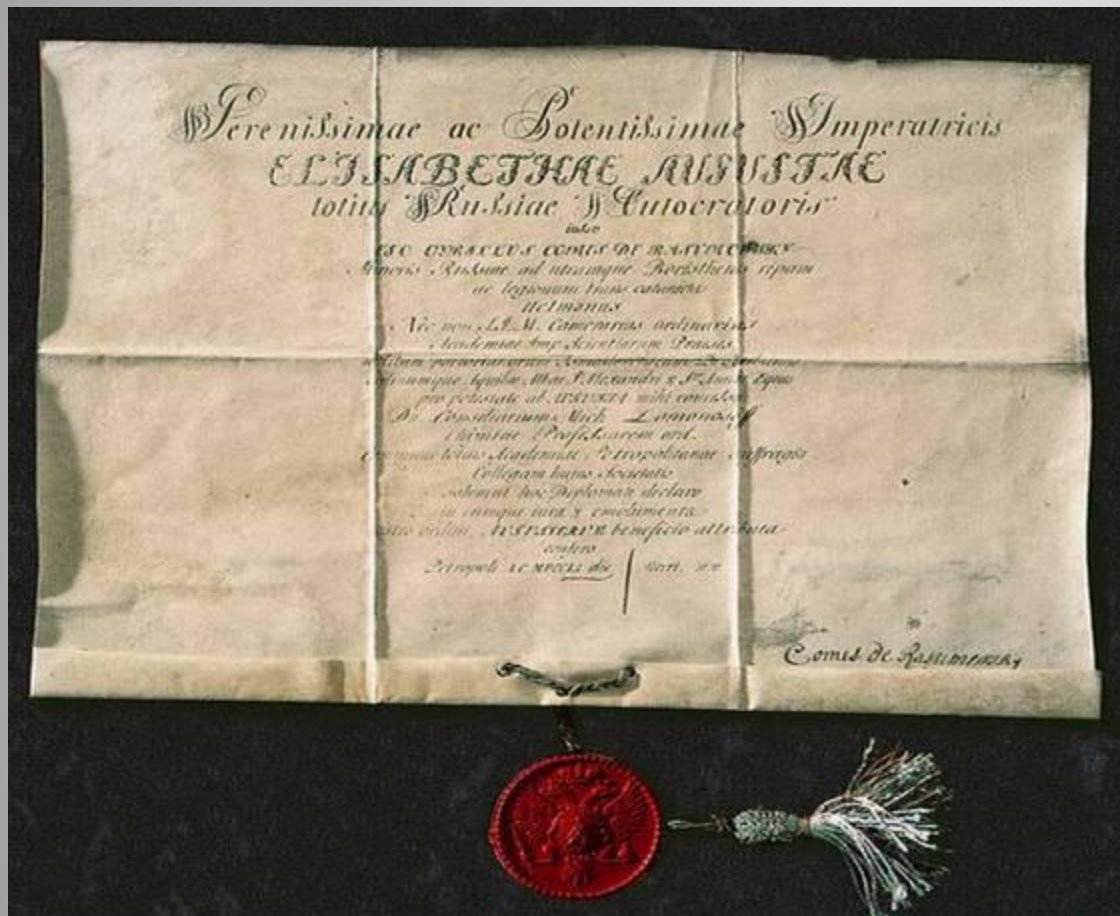 Serenissimae ac Potentissimae Imperatricis
ELISABETHAE AUGUSTAE
totius Russiae Autocratoris
iussu
EGO CYRILLUS COMES DE RASUMOWSKY
Minoris Russiae ad utramque Boristhenis ripam
ac legionum trans catarracta
Hetmanus
Nec non S. I. M. Camerarius ordinarius
Academiae Imp Scientiarum Praeses
Ordinumque Aquilae Albae S. Alexandri & Stae Annae Eques
pro potestate ab AUGUSTA mihi concessa
Dn Consiliarium Mich Lomonosoff
Chimiae Professorem ord.
communi totius Academiae Petropolitanae suffragio
Collegam huius Societatis
solemni hoc Diplomate declaro
in eumque iura & emolumenta
ordini AUGUSTAE beneficio attributa
confero
Petropoli MDCCLI die
Comes de Rasumowsky